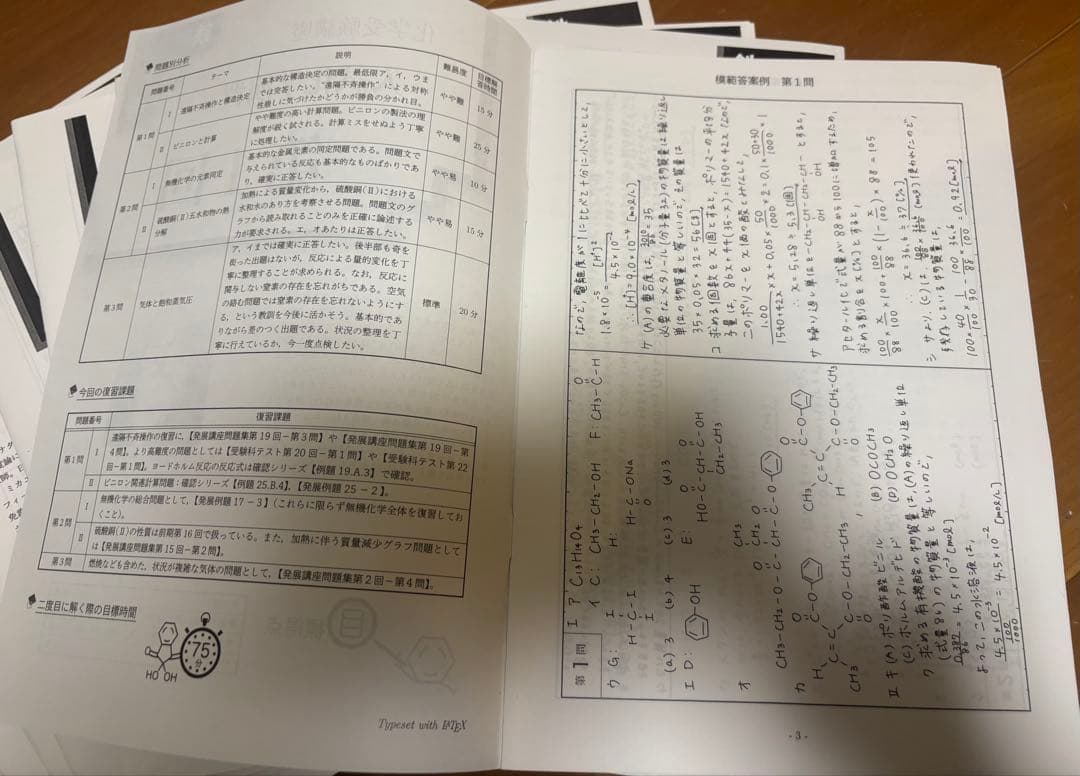 問題別分析
問題番号 テーマ 説明 難易度 目標解答時間
第1問 I 遠隔不斉操作と構造決定
基本的な構造決定の問題。最低限ア、イ、ウま
では完答したい。"遠隔不斉操作"による対称
性崩しに気づけたかどうかが勝負の分かれ目。
やや難 15分
II ビニロンと計算
やや難度の高い計算問題。ビニロンの製法の理
解度が鋭く試される。計算ミスをせぬよう丁寧
に処理したい。
やや難 25分
第2問 I 無機化学の元素同定
基本的な金属元素の同定問題である。問題文で
与えられている反応も基本的なものばかりであ
り、確実に正答したい。
やや易 10分
II 硫酸銅(II)五水和物の熱分解
加熱による質量変化から、硫酸銅(II)における
水和水のあり方を考察させる問題。問題文のグ
ラフから読み取れることのみを正確に論述する
力が要求される。エ、オあたりは正答したい。
やや易 15分
第3問 気体と飽和蒸気圧
ア、イまでは確実に正答したい。後半部も奇を
衒った出題はないが、反応による量的変化を丁
寧に整理することが求められる。なお、反応に
関与しない窒素の存在を忘れがちである。空気
の絡む問題では窒素の存在を忘れないようにす
る、という教訓を今後に活かそう。基本的であ
りながら差のつく出題である。状況の整理を丁
寧に行えているか、今一度点検したい。
標準 20分
今回の復習課題
問題番号 復習課題
第1問 I 遠隔不斉操作の復習に、【発展講座問題集第19回-第3問】や【発展講座問題集第19回-第
4問】。より高難度の問題としては【受験科テスト第20回-第1問】や【受験科テスト第22
回-第1問】。ヨードホルム反応の反応式は確認シリーズ【例題19.A.3】で確認。
II ビニロン関連計算問題:確認シリーズ【例題25.B.4】、【発展例題25-2】。
第2問 I 無機化学の総合問題として、【発展例題17-3】(これらに限らず無機化学全体を復習してお
くこと)。
II 硫酸銅(II)の性質は前期第16回で扱っている。また、加熱に伴う質量減少グラフ問題として
は【発展講座問題集第15回-第2問】。
第3問 燃焼なども含めた、状況が複雑な気体の問題として、【発展講座問題集第2回-第4問】。
二度目に解く際の目標時間
75分
HO OH
Typeset with LATEX
模範答案例 第1問
第1問
I ア C13H14O4
イ C: CH3-CH2-OH F: CH3-C-H O
ウ G: H-C-I I I H: H-C-ONa O
(a) 3 (b) 4 (c) 3 (d) 3
エ D: OH E: HO-C-CH-C-OH O O CH2-CH3
オ CH3-CH2-O-C-CH-C-O O CH2 O CH3
カ H C=C CH3 C-O C-O-CH2-CH3 O O
CH3 C=C H C-O C-O-CH2-CH3 O O
II キ (A) ポリ酢酸ビニル (B) OCOCH3
(C) ホルムアルデヒド (D) OCH2O
ク 求める有機酸の物質量は、(A)の繰り返し単位
(式量86)の物質量と等しいので、
0.387/86 = 4.5×10⁻³[mol]
よって、この水溶液は、
4.5×10⁻³/(100/1000) = 4.5×10⁻² [mol/L]
なので、電離度が1に比べて十分に小さいとして、
1.8×10⁻⁵ = [H⁺]²/4.5×10⁻²
∴ [H⁺]=9.0×10⁻⁴ [mol/L]
ケ (A)の重合度は、3010/86=35
必要なメタノール(分子量32)の物質量は繰り返し
単位の物質量と等しいので、その質量は
35×0.05×32=56[g]
コ 求める個数をx個とすると、ポリマーの平均分
子量は、86x+44(35-x)=1540+42x なので、
このポリマーをx価の酸とみなして、
1.00/(1540+42x)×x+0.05×50/1000×2=0.1×(50+30)/1000×1
∴ x=5.28≒5.3[個]
サ 繰り返し単位を-CH2-CH-CH2-CH- OH OH とすると、
アセタール化で式量が88から100に増加するため、
求める割合をx[%]とすると、
100/88×x/100×100+100/88×(1-x/100)×88=105
x=36.6≒37[%]
シ サより、(C)は、100/88×36.6/100[mol]使われたので、
残存している物質量は、
100×40/100×1/30-100/88×36.6/100=0.92[mol]
- 3 -